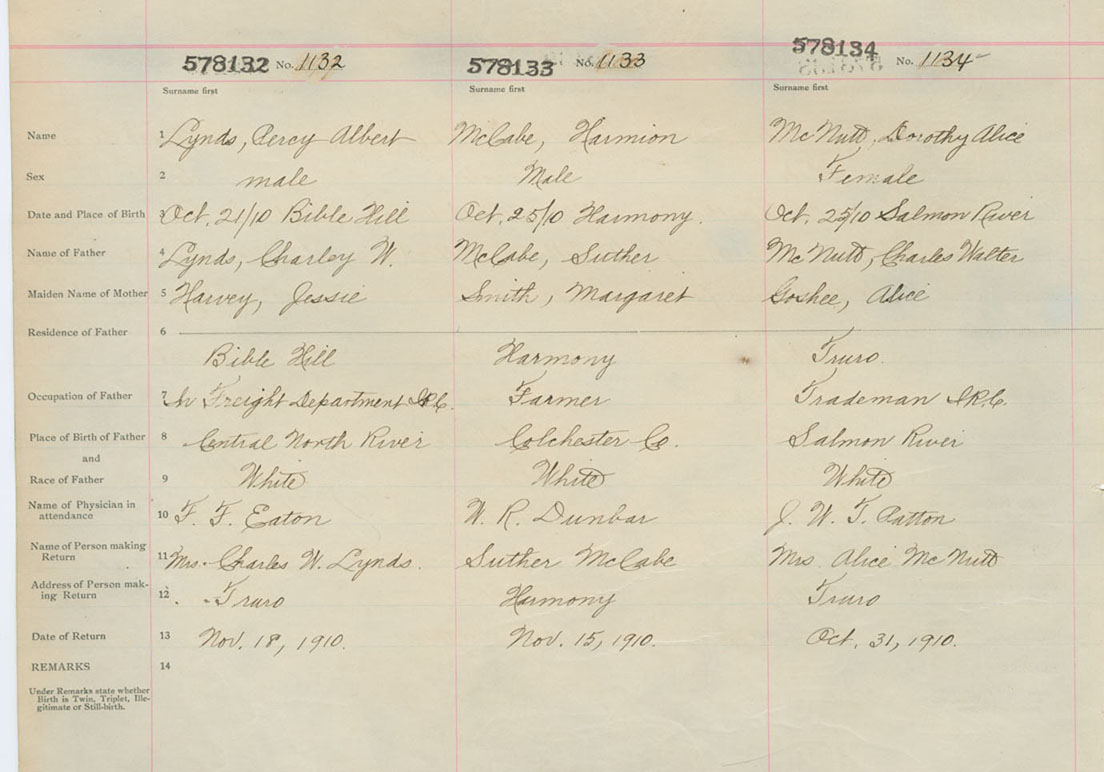 578132 No. 1132 578133 No. 1133 578134 No. 1134
Surname first Surname first Surname first
Name 1 Lynds, Percy Albert McCabe, Harmion McNutt, Dorothy Alice
Sex 2 male Male Female
Date and Place of Birth 3 Oct. 21/10 Bible Hill Oct. 25/10 Harmony. Oct. 25/10 Salmon River
Name of Father 4 Lynds, Charley W. McCabe, Suther McNutt, Charles Walter
Maiden Name of Mother 5 Harvey, Jessie Smith, Margaret Goshee, Alice
Residence of Father 6
Bible Hill Harmony Truro
Occupation of Father 7 In Freight Department I.R.C. Farmer Trademan I.R.C.
Place of Birth of Father 8 Central North River Colchester Co. Salmon River
and
Race of Father 9 White White White
Name of Physician in
attendance 10 F. F. Eaton W. R. Dunbar J. W. T. Patton
Name of Person making
Return 11 Mrs. Charles W. Lynds. Suther McCabe Mrs. Alice McNutt
Address of Person mak-
ing Return 12 Truro Harmony Truro
Date of Return 13 Nov. 18, 1910. Nov. 15, 1910. Oct. 31, 1910.
REMARKS 14
Under Remarks state whether
Birth is Twin, Triplet, Ille-
gitimate or Still-birth.